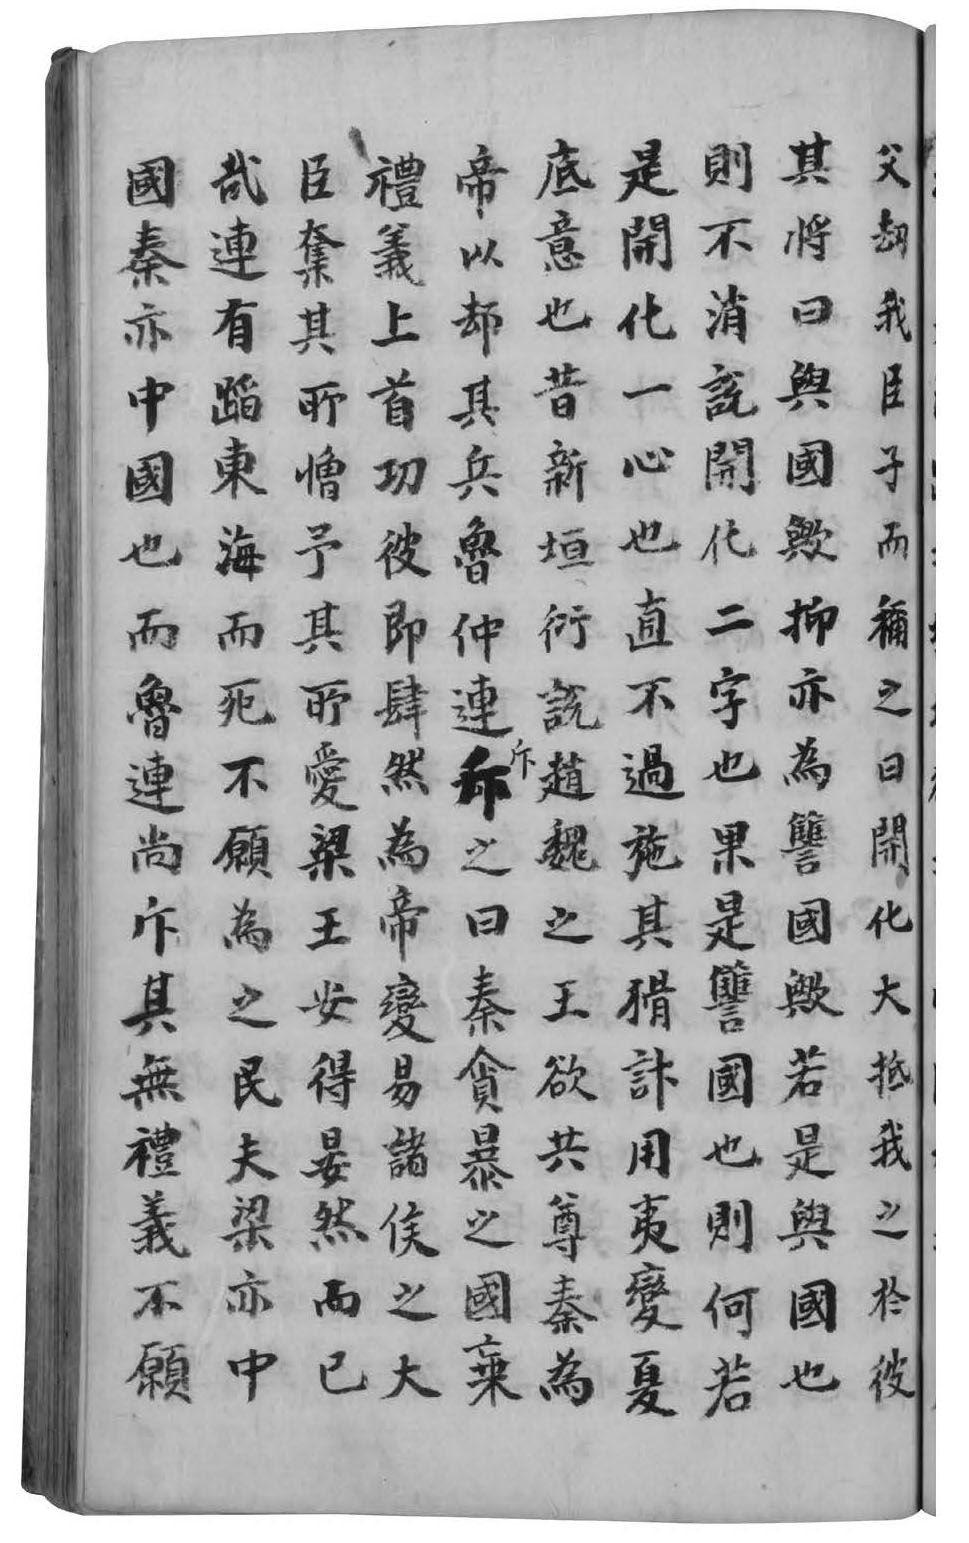 父劫我臣子而稱之曰開化大抵我之於彼
其將曰與國歟抑亦為讐國歟若是與國也
則不消說開化二字也果是讐國也則何若
是開化一心也直不過施其猾計用夷變夏
底意也昔新垣衍說趙魏之王欲共尊秦為
帝以却其兵魯仲連斥之曰秦貪暴之國棄
禮義上首功彼即肆然為帝變易諸侯之大
臣奪其所憎予其所愛梁王安得晏然而已
哉連有蹈東海而死不願為之民夫梁亦中
國秦亦中國也而魯連尚斥其無禮義不願